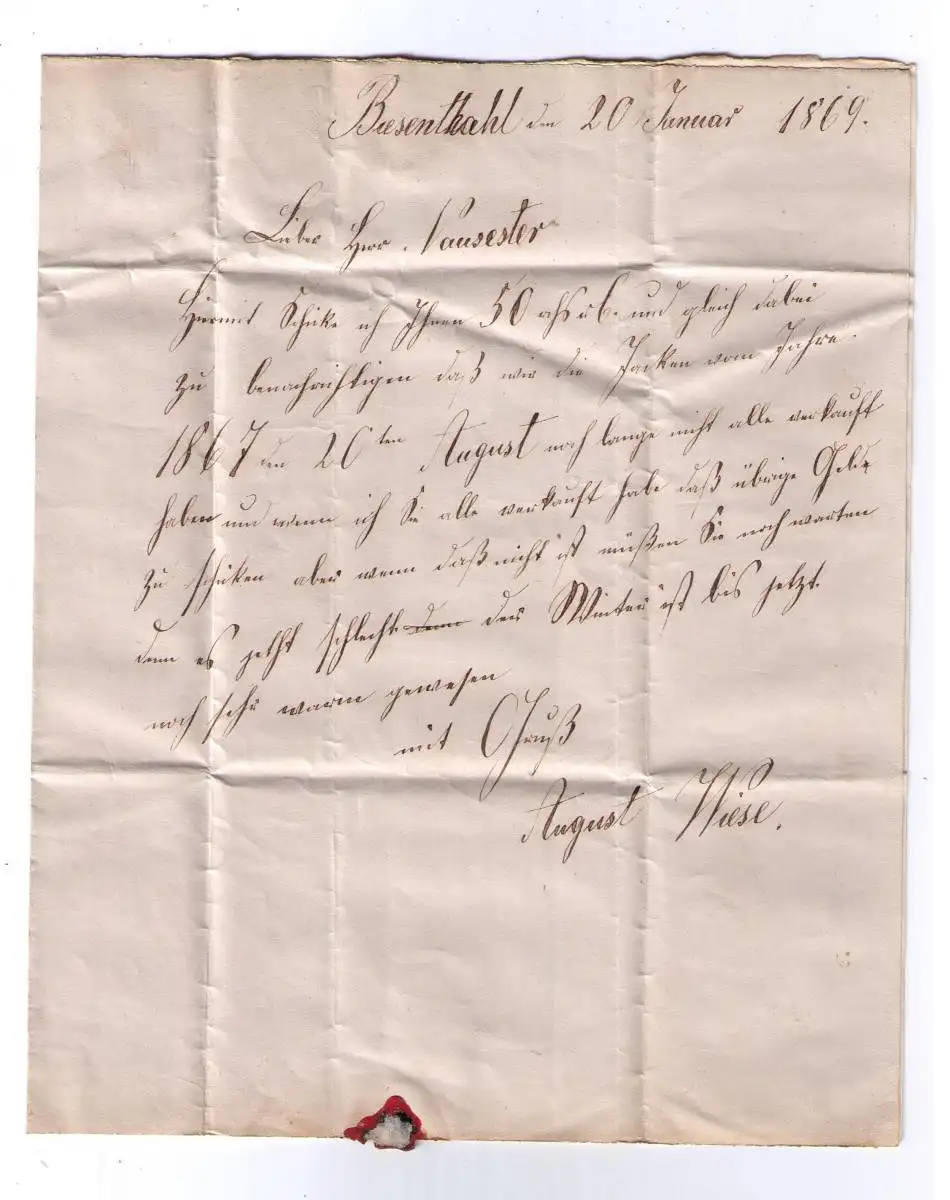 Biesenthahl den 20 Januar 1869.
Lieber Herr Nausester
Hiermit Schike ich Ihnen 50 und gleich dabei
zu benachrichtigen daß wir die Jacken vom Jahre
1867 den 20ten August noch lange nicht alle verkauft
haben und wenn ich Sie alle verkauft habe daß übrige Geld
zu schiken aber wenn daß nicht ist müßen Sie noch warten
denn es geht schlecht denn der Winter ist bis jetzt
noch sehr warm gewesen
mit Gruß
August Wiese.